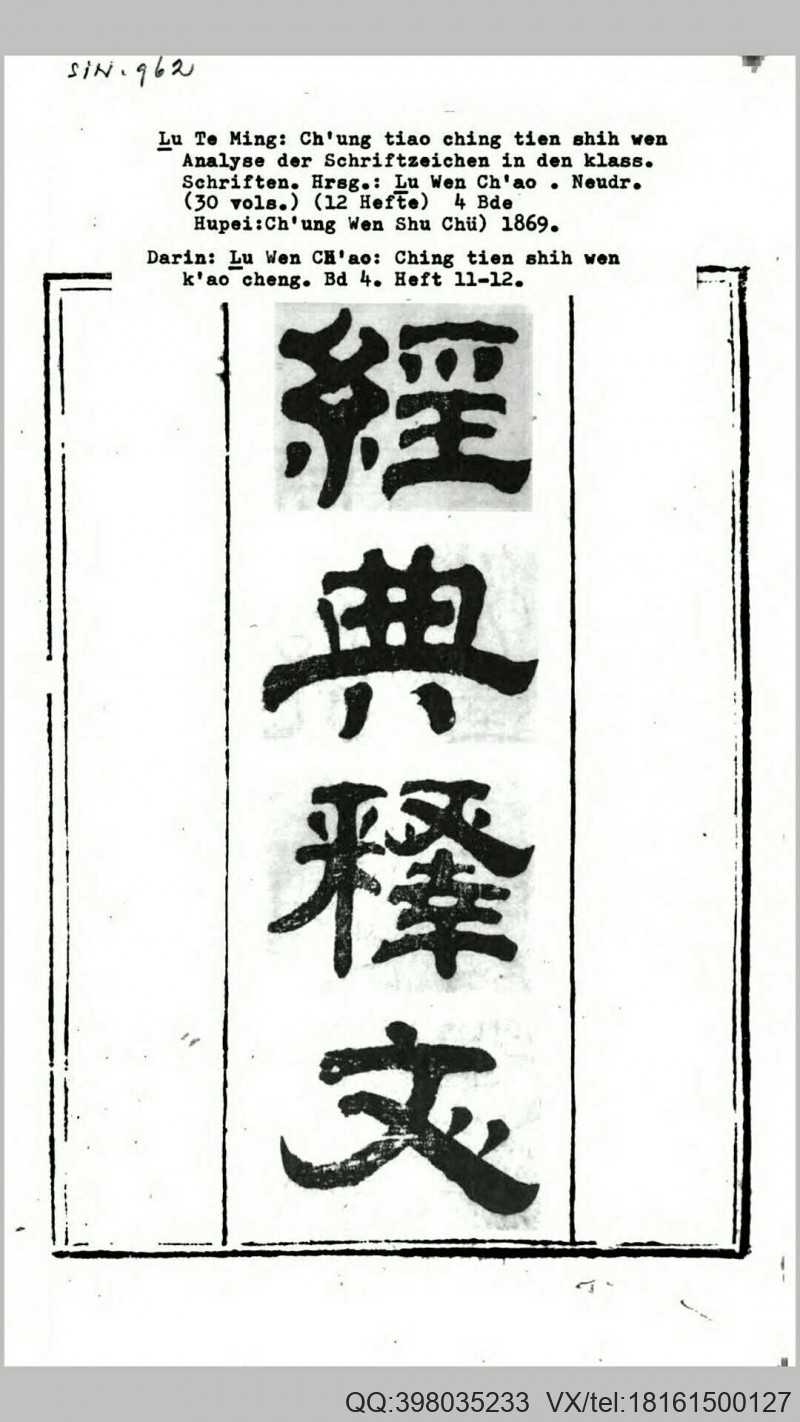 SIN. 962
Lu Te Ming: Ch'ung tiao ching tien shih wen
Analyse der Schriftzeichen in den klass.
Schriften. Hrsg.: Lu Wen Ch'ao . Neudr.
(30 vols.) (12 Hefte) 4 Bde
Hupei:Ch'ung Wen Shu Chü) 1869.
Darin: Lu Wen CH'ao: Ching tien shih wen
k'ao cheng. Bd 4. Heft 11-12.
經典釋文
QQ:398035233 VX/tel:18161500127